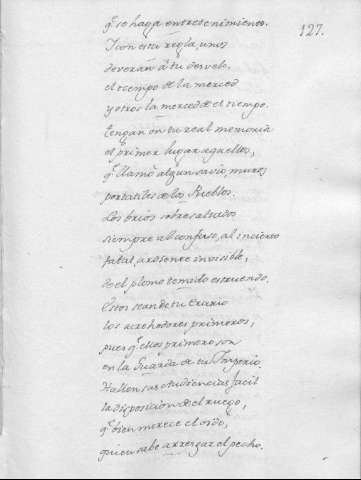 127.
q.e se haga entretenimiento.
Y con esta regla, unos
deveràn à tu desvelo,
el tiempo de la merced
y otros la merced de el tiempo.
tengan en tu real memoria
el primer lugar aquellos,
q.e llamò algun savio, muros
portatiles de los Pueblos.
Los brios sobresaltados
siempre al confuso, al incierto
fatal, ardiente invisible,
de el plomo temido estruendo.
Estos sean de tu Erario
los acrehedores primeros,
pues q.e ellos primero son
en la Guarda de tu Imperio.
Hallen sus audiencias facil
la disposicion de el ruego,
q.e bien merece el oído,
quien sabe arresgar el pecho.